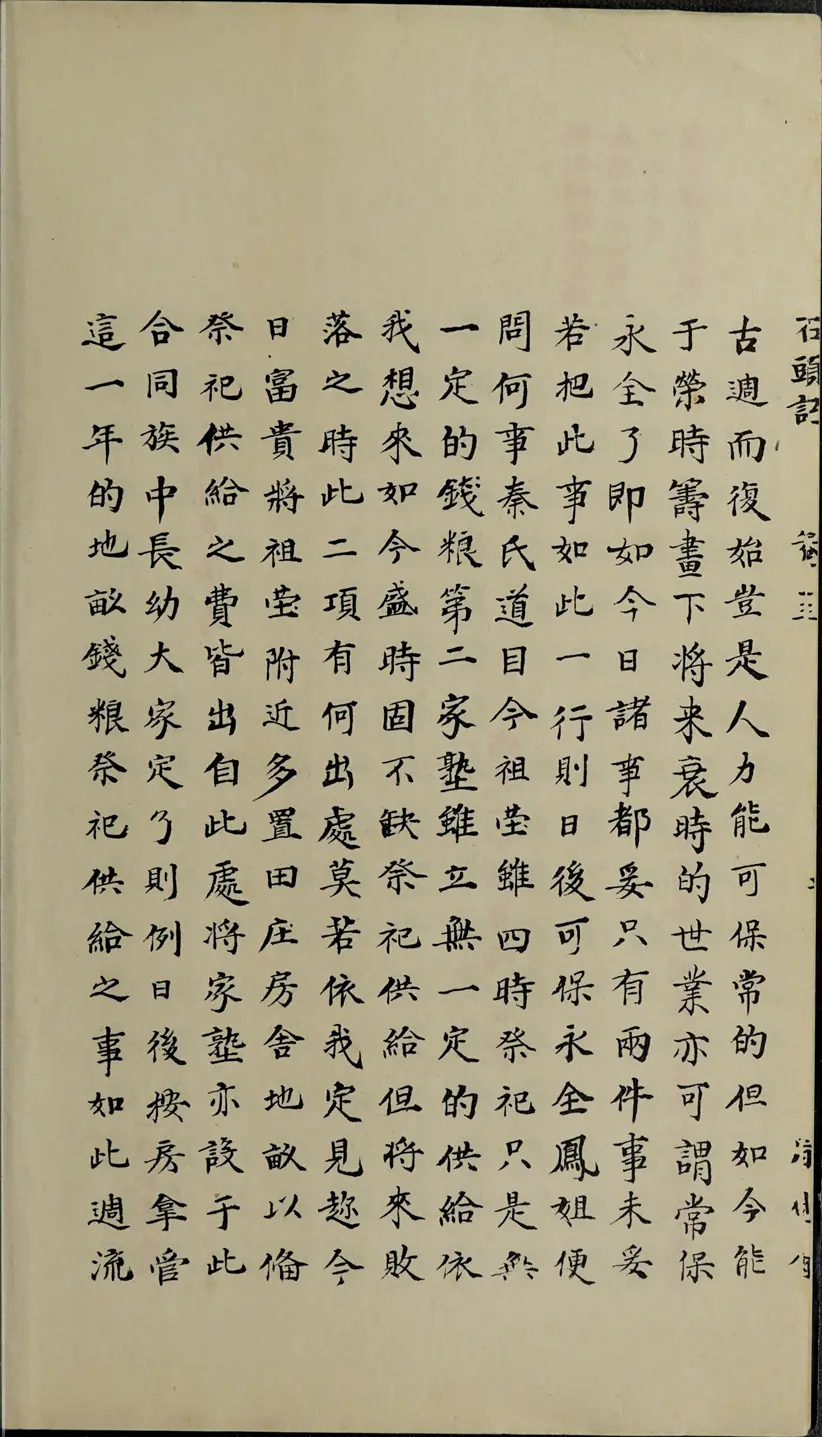 石頭記
古週而復始豈是人力能可保常的但如今能
于榮時籌畫下將來衰時的世業亦可謂常保
永全了即如今日諸事都妥只有兩件事未妥
若把此事如此一行則日後可保永全鳳姐便
問何事秦氏道目今祖塋雖四時祭祀只是無
一定的錢粮第二家塾雖立無一定的供給依
我想來如今盛時固不缺祭祀供給但將來敗
落之時此二項有何出處莫若依我定見趂今
日富貴將祖塋附近多置田庄房舍地畝以俻
祭祀供給之費皆出自此處將家塾亦設于此
合同族中長幼大家定了則例日後按房拿管
這一年的地畝錢粮祭祀供給之事如此週流